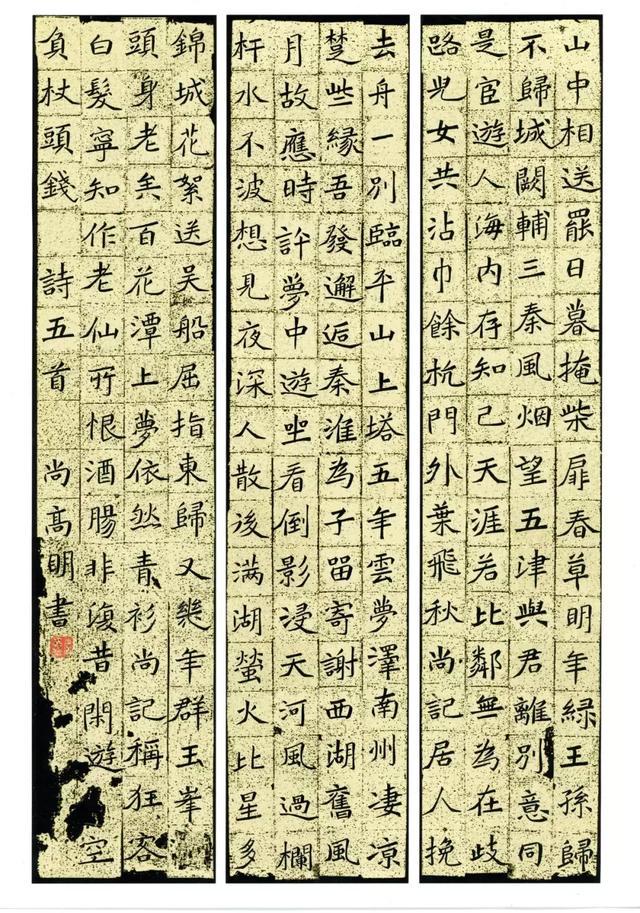 山中相送罷日暮掩柴扉春草明年緑王孫歸
不歸城闕輔三秦風烟望五津與君離別意同
是宦遊人海内存知己天涯若比鄰無為在歧
路兒女共沾巾餘杭門外葉飛秋尚記居人挽
去舟一別臨平山上塔五年雲夢澤南州凄凉
楚些緣吾發邂逅秦淮為子留寄謝西湖舊風
月故應時許夢中遊坐看倒影浸天河風過欄
杆水不波想見夜深人散後满湖螢火比星多
錦城花絮送吴船屈指東歸又幾年群玉峯
頭身老矣百花潭上夢依然青衫尚記稱狂客
白髮寧知作老仙所恨酒腸非復昔閑遊空
負杖頭錢 詩五首 尚高明書